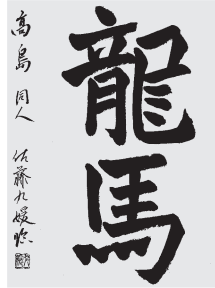 龍馬
高島 同人 佐藤九媛